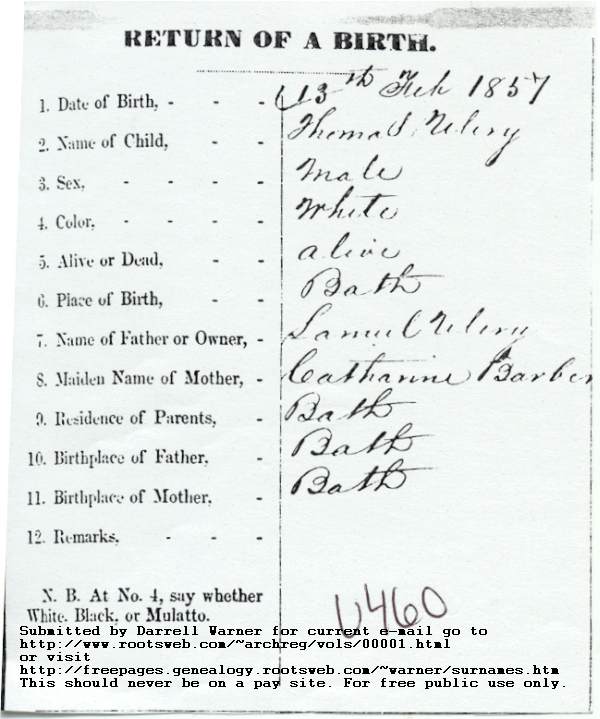 RETURN OF A BIRTH.
1. Date of Birth, - - - 13th Feb 1857
2. Name of Child, - - Thomas
3. Sex, - - - - Male
4. Color, - - - - White
5. Alive or Dead, - - alive
6. Place of Birth, - - Bath
7. Name of Father or Owner, - Samuel
8. Maiden Name of Mother, - Catharine Barber
9. Residence of Parents, - Bath
10. Birthplace of Father, - Bath
11. Birthplace of Mother, - Bath
12. Remarks, - - -
N. B. At No. 4, say whether
White, Black, or Mulatto.
460
Submitted by Darrell Warner for current e-mail go to
http://www.rootsweb.com/~archreg/vols/00001.html
or visit
http://freepages.genealogy.rootsweb.com/~warner/surnames.htm
This should never be on a pay site. For free public use only.